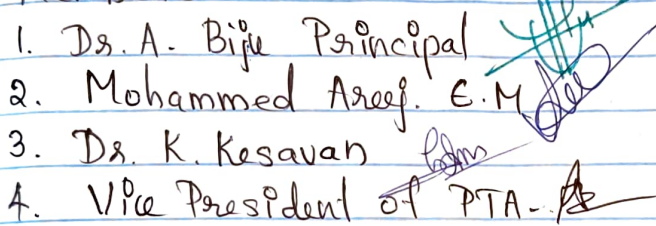 1. Dr. A. Biju Principal
2. Mohammed Areej. E.M
3. Dr. K. Kesavan
4. Vice President of PTA -